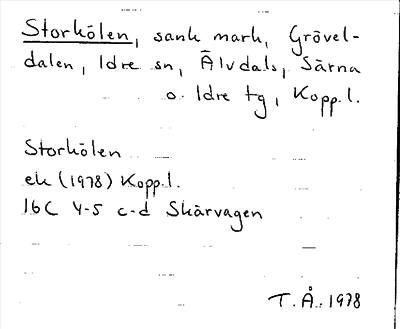 Storkölen, sank mark, Grövel-
dalen, Idre sn, Älvdals, Särna
o. Idre tg, Kopp.l.
Storkölen
ek (1978) Kopp.l.
16C 4-5 c-d Skärvagen
T.Å. 1978